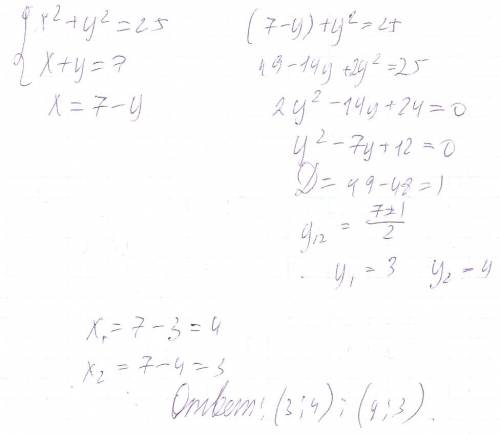 { x² + y² = 25
x + y = 7
x = 7 - y
(7 - y) + y² = 25
49 - 14y + 2y² = 25
2y² - 14y + 24 = 0
y² - 7y + 12 = 0
D = 49 - 48 = 1
y₁₂ = (7 ± 1)/2
y₁ = 3 y₂ = 4
x₁ = 7 - 3 = 4
x₂ = 7 - 4 = 3
Ответ: (3; 4); (4; 3).